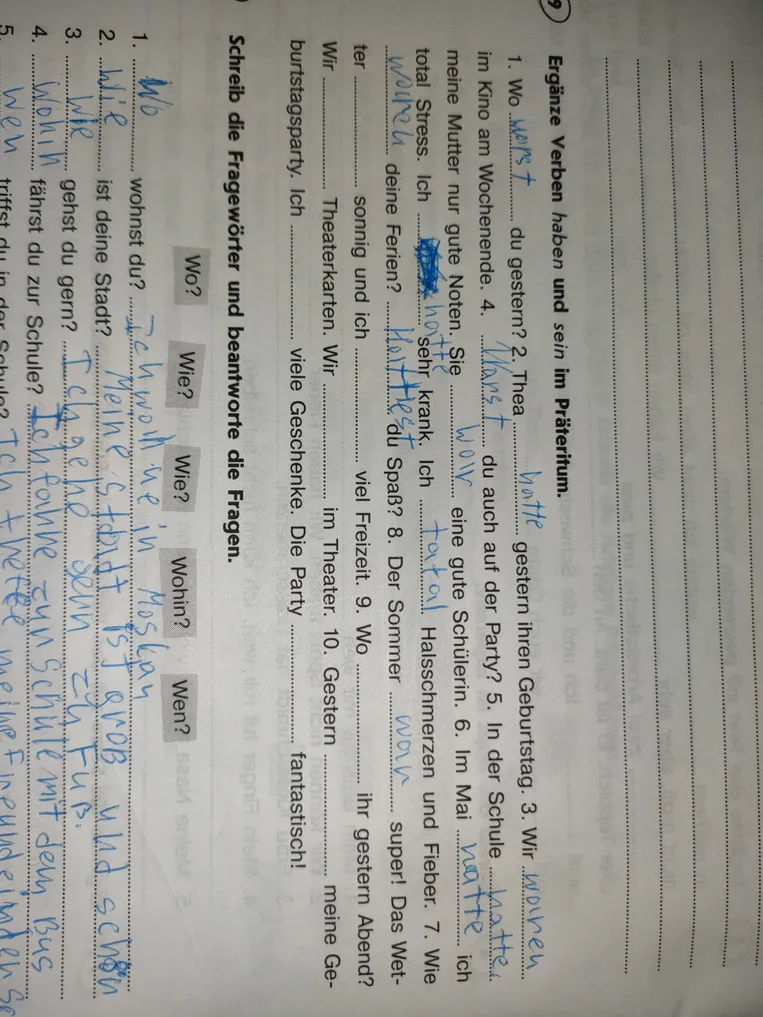 9 Ergänze Verben haben und sein im Präteritum.
1. Wo warst du gestern? 2. Thea hatte gestern ihren Geburtstag. 3. Wir waren
im Kino am Wochenende. 4. Warst du auch auf der Party? 5. In der Schule hatte
meine Mutter nur gute Noten. Sie war eine gute Schülerin. 6. Im Mai hatte ich
total Stress. Ich hatte sehr krank. Ich total Halsschmerzen und Fieber. 7. Wie
waren deine Ferien? Hattest du Spaß? 8. Der Sommer war super! Das Wet-
ter ........ sonnig und ich ........ viel Freizeit. 9. Wo ........ ihr gestern Abend?
Wir ........ Theaterkarten. Wir ........ im Theater. 10. Gestern ........ meine Ge-
burtstagsparty. Ich ........ viele Geschenke. Die Party ........ fantastisch!
Schreib die Fragewörter und beantworte die Fragen.
Wo? Wie? Wie? Wohin? Wen?
1. Wo wohnst du? Ich wohne in Moskau
2. Wie ist deine Stadt? Meine Stadt ist groß und schön
3. Wie gehst du gern? Ich gehe gern zu Fuß.
4. Wohin fährst du zur Schule? Ich fahre zur Schule mit dem Bus
5. Wen triffst du in der Schule? Ich meine in der